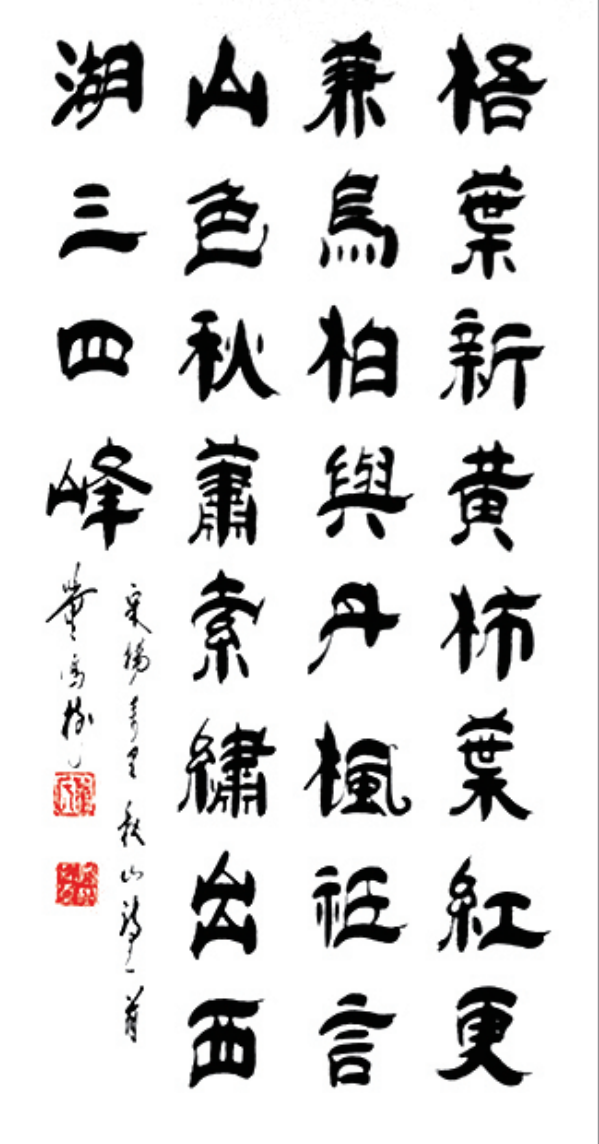 梧葉新黃柿葉紅更
兼烏桕與丹楓祗言
山色秋蕭索繡出西
湖三四峰
宋楊萬里秋山詩一首